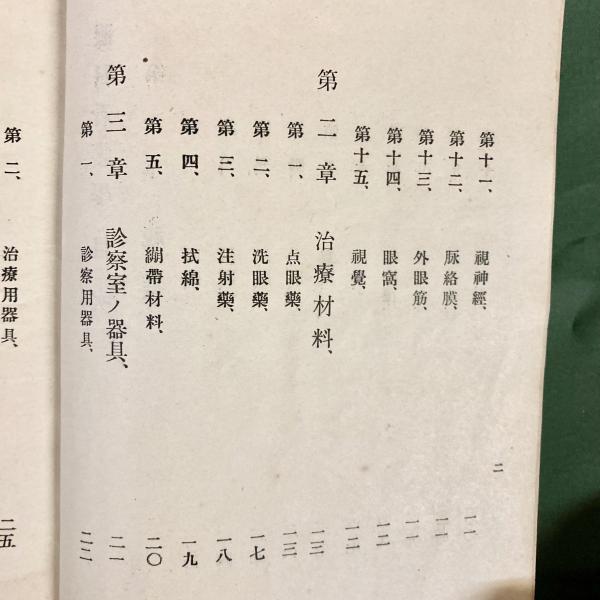 第十一、視神經、一一
第十二、脉絡膜、一一
第十三、外眼筋、一一
第十四、眼窩、一二
第十五、視覺、一二
第二章 治療材料、一三
第一、点眼藥、一三
第二、洗眼藥、一七
第三、注射藥、一八
第四、拭綿、一九
第五、繃帶材料、二〇
第三章 診察室ノ器具、二一
第一、診察用器具、二二
二
第二、治療用器具、二五